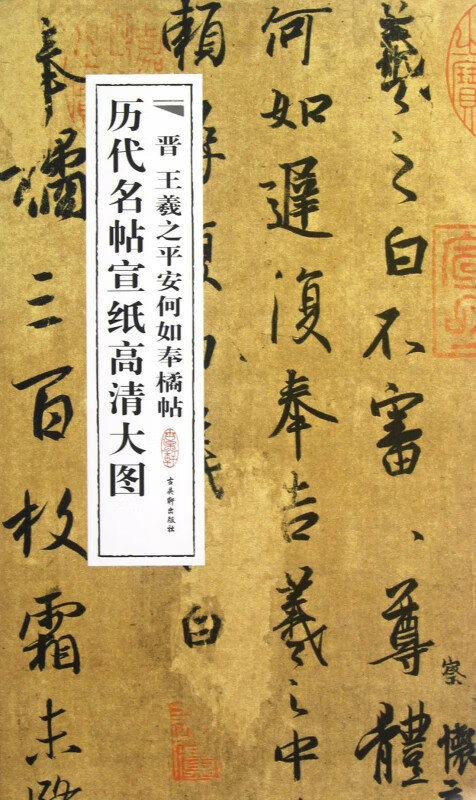 察
懷
羲之白不審、尊體
何如遲復奉告羲之中
賴
白
晋 王羲之平安何如奉橘帖
古吴轩出版社
历代名帖宣纸高清大图
奉橘三百枚霜未